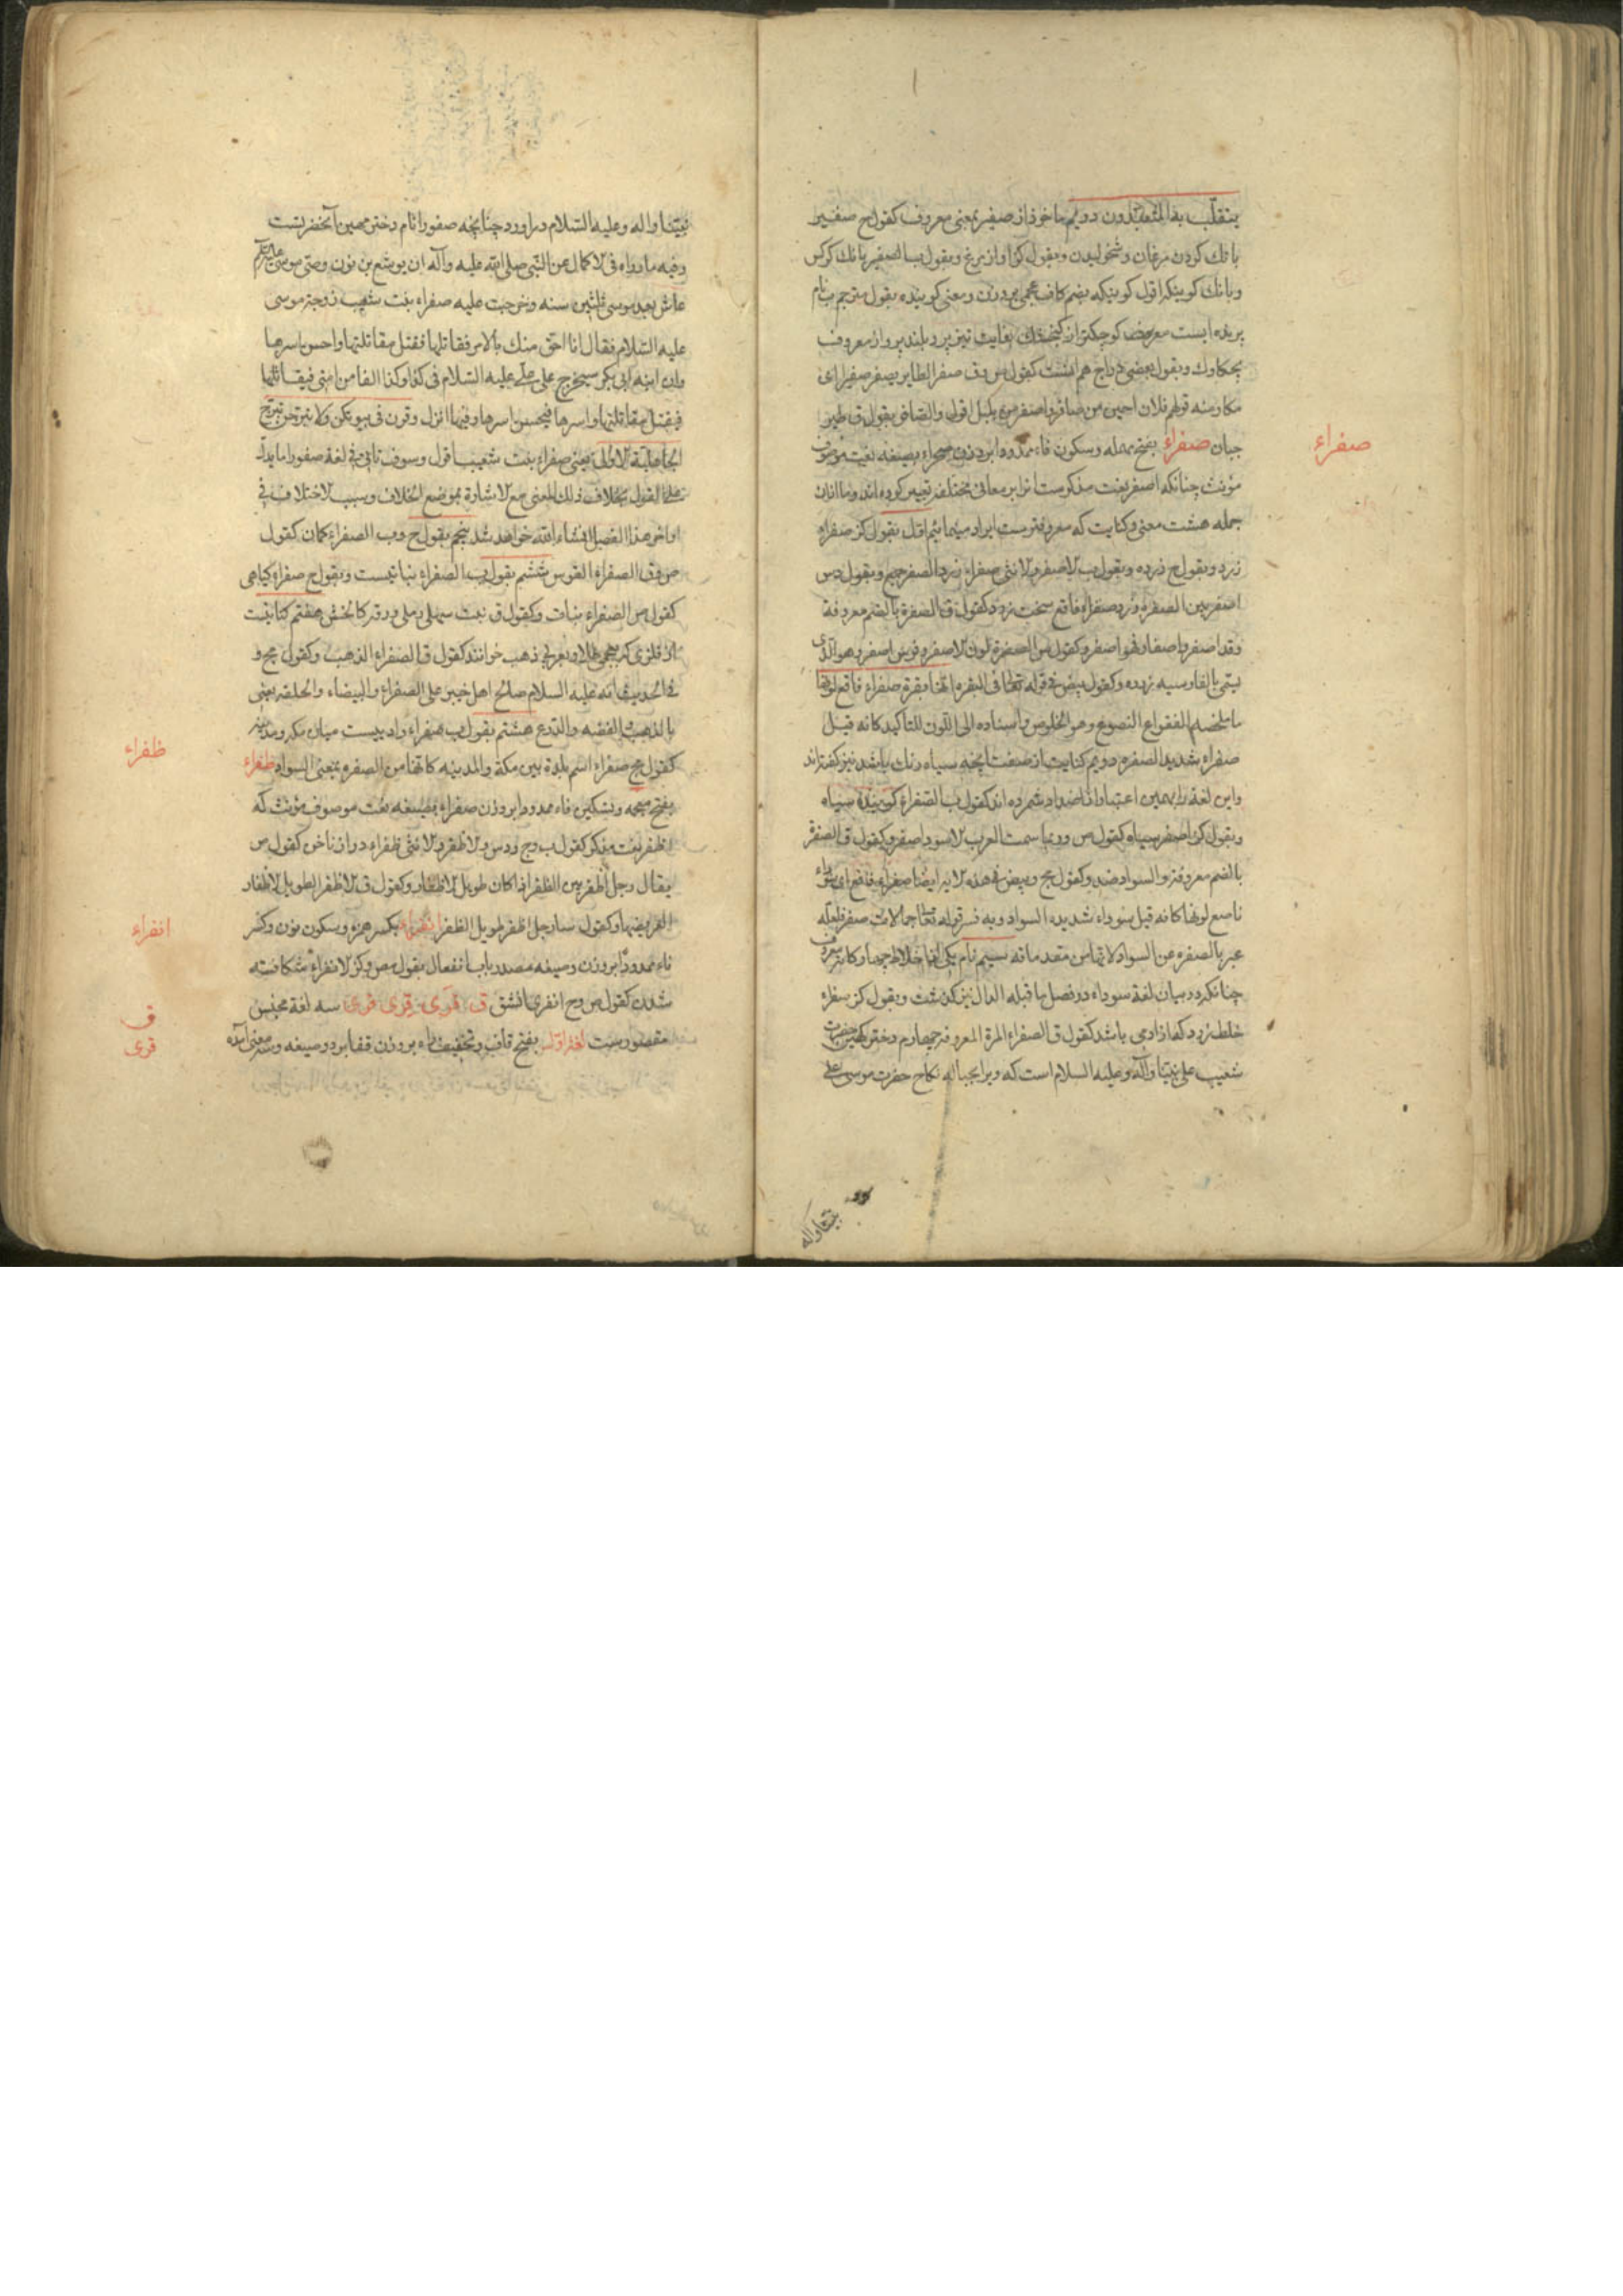 ینقلب بقا المتعبدون دویم ماخوذ از صفیر بمعنی معروف کقول ح صفیر
بانك كردن مرغان و شخولیدن وبقول كز اواز مرغ وبقول ب الصفیر بانك كركس
پرنده ایست معروف كوچكتر از كنجشك بغایت تیز پرد بلند پرواز معروف
چكاوك وبقول بعضی دراج هم هست كقول ص ق صفر الطایر یصفر صفیرا ای
مكا ومنه قولهم فلان اجبن من صافر واصفر من بلبل اقول والصافر بقول ق طیر
جبان صفراء بفتح مهمله وسكون فاء ممدودا بر وزن صحراء بصیغه نعت موصوف
صفراء
مؤنث چنانكه اصفر نعت مذكرست انرا بر معانی مختلفه تعبیر كرده اند وما ازان
جمله هشت معنی وكنایت كه معروفترست ایراد مینمائیم اول بقول كز صفراء
زرد وبقول ح زرده وبقول ب الاصفر والانثی صفراء زرد الصفر جمع وبقول دس
اصفر بین الصفرة وزرد صفراء فاقع سخت زرد كقول ق الصفرة بالضم معروفة
وقد اصفر واصفار وهو اصفر وكقول ص الصفرة لون الاصفر وفرس اصفر وهو الذی
یسمی بالفارسیه زرده وكقول بیض فی قوله تعالی فی البقره انها بقرة صفراء فاقع لونها
ما ملخصه الفقوع النصوع وهو الخلوص واسناده الی اللون للتاكید كانه قیل
صفراء شدید الصفره دویم كنایت از صفت انچه سیاه رنك باشد نیز كفته اند
واین لغة را بهمین اعتبار از اضداد شمرده اند كقول ب الصفراء كویند سیاه
وبقول كز اصفر سیاه كقول ص وربما سمت العرب الاسود اصفر وكقول ق الصفرة
بالضم معروفة والسواد ضد وكقول مج وبیض فی هذه الایه ایضا صفراء فاقع ای سوداء
ناصع لونها كانه قیل سوداء شدیده السواد وبه فسر قوله تعالی جمالات صفر فلعله
عبر بالصفره عن السواد لانها من مقدماته سیم نام یكی از اخلاط چهار كانه معروف
چنانكه در بیان لغة سوداء در فصل ما قبله الدال نیز كذشت وبقول كز سفراء
خلط زرد كه از ادمی باشد كقول ق الصفراء المرة المعروفة چهارم دختر كهین حضرت
شعیب علی نبینا وآله وعلیه السلام است كه ویرا بحباله نكاح حضرت موسی علی
نبینا واله
نبینا واله وعلیه السلام دراورد چنانچه صفورا نام دختر مهین انحضرتست
وفیه ما رواه فی الاكمال عن النبی صلی الله علیه وآله ان یوشع بن نون وصی موسی علیه السلام
عاش بعد موسی ثلثین سنه وخرجت علیه صفراء بنت شعیب زوجة موسی
علیه السلام فقال انا احق منك بالامر فقاتلها فقتل مقاتلتها واحسن اسرها
وان ابنة ابی بكر سیخرج علی علی علیه السلام فی كذا وكذا الفا من امتی فیقاتلها
فیقتل مقاتلتها واسرها فیحسن اسرها وفیها انزل وقرن فی بیوتكن ولا تبرجن تبرج
الجاهلیة الاولی یعنی صفراء بنت شعیب اقول وسوف تاتی فی لغة صفورا ما یدل
علی القول بخلاف ذلك المعنی مع الاشارة بموضع الخلاف وسبب الاختلاف فی
اواخر هذا الفصل انشاء الله خواهد شد پنجم بقول ح وب الصفراء كمان كقول
ص وق الصفراء القوس ششم بقول ب الصفراء نباتیست وبقول ح صفراء كیاهی
كقول ص الصفراء نبات وكقول ق نبت سهلی رملی ورقه كالخس هفتم كنایتست
از فلزی كه بعجمی طلا وبعربی ذهب خوانند كقول ق الصفراء الذهب وكقول مج و
فی الحدیث انه علیه السلام صالح اهل خیبر علی الصفراء والبیضاء والحلقه یعنی
بالذهب والفضه والدرع هشتم بقول ب صفراء وادییست میان مكه ومدینه
كقول مج صفراء اسم بلدة بین مكة والمدینه كانها من الصفره بمعنی السواد ظفراء
ظفراء
بفتح معجمه وتسكین فاء ممدودا بر وزن صفراء بصیغه نعت موصوف مؤنث كه
اظفر نعت مذكر كقول ب وح ودس والاظفر والانثی ظفراء دراز ناخن كقول ص
یقال رجل اظفر بین الظفر اذا كان طویل الاظفار وكقول ق الاظفر الطویل الاظفار
العریضها وكقول سا رجل اظفر طویل الظفر انفراء بكسر همزه وسكون نون وكسر
انفراء
فاء ممدودا بر وزن وصیغه مصدر باب انفعال بقول مص وكز الانفراء شكافته
شدن كقول ص وح انفری انشق ق قری قری قری سه لغة مجنس
ق
مقصورست لغة اول بفتح قاف وتخفیف راء بر وزن قفا بر دو صیغه وسه معنی آمده
قری